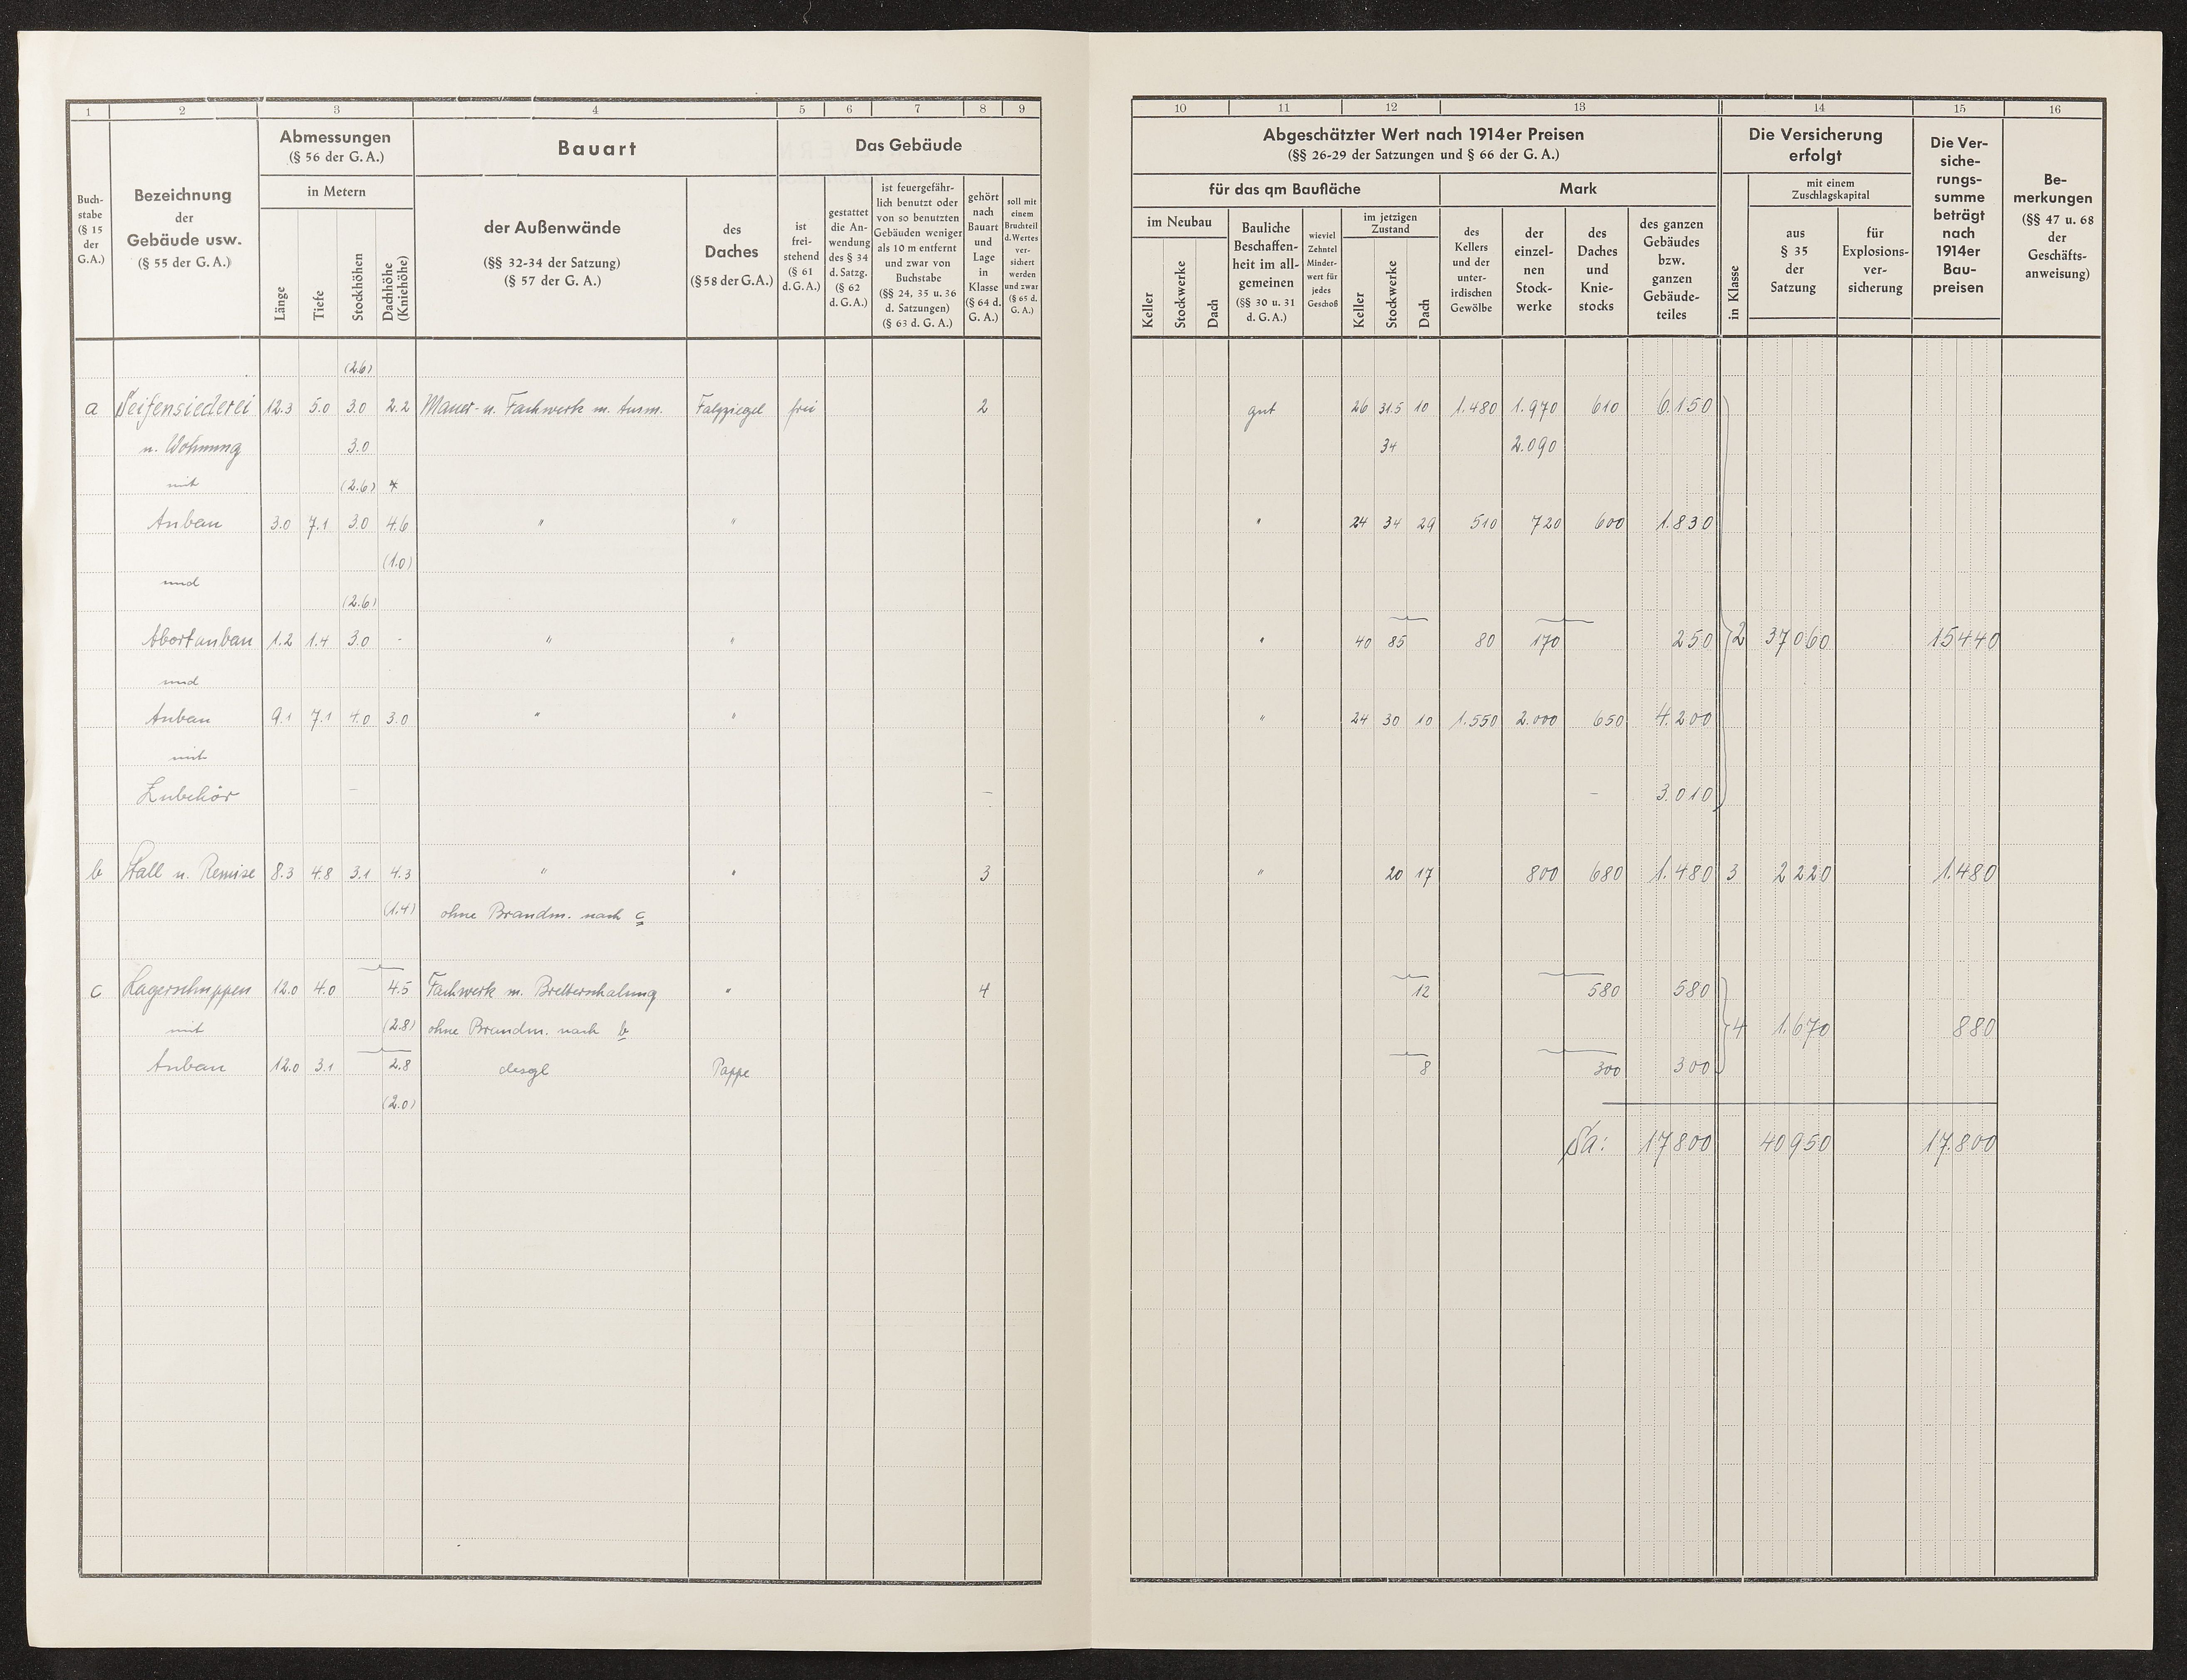 1 2 3 4 5 6 7 8 9
Buch-
stabe
(§ 15
der
G.A.)
Bezeichnung
der
Gebäude usw.
(§ 55 der G. A.)
Abmessungen
(§ 56 der G. A.)
in Metern
Länge
Tiefe
Stockhöhen
Dachhöhe
(Kniehöhe)
Bauart
der Außenwände
(§§ 32-34 der Satzung)
(§ 57 der G. A.)
des
Daches
(§ 58 der G.A.)
Das Gebäude
ist
frei-
stehend
(§ 61
d. G. A.)
gestattet
die An-
wendung
des § 34
d. Satzg.
(§ 62
d. G. A.)
ist feuergefähr-
lich benutzt oder
von so benutzten
Gebäuden weniger
als 10 m entfernt
und zwar von
Buchstabe
(§§ 24, 35 u. 36
d. Satzungen)
(§ 63 d. G. A.)
gehört
nach
Bauart
und
Lage
in
Klasse
(§ 64 d.
G. A.)
soll mit
einem
Bruchteil
d. Wertes
ver-
sichert
werden
und zwar
(§ 65 d.
G. A.)
(2.6)
a Seifensiederei 12.3 5.0 3.0 2.2 Mauer- u. Fachwerk m. Ausm. Falzziegel frei 2
u. Wohnung 3.0
mit (2.6)
Anbau 3.0 7.1 3.0 4.6 " "
(1.0)
und
(2.6)
Abortanbau 1.2 1.4 3.0 - " "
und
Anbau 9.1 7.1 4.0 3.0 " "
mit
Zubehör – –
b Stall u. Remise 8.3 4.8 3.1 4.3 " " 3
(1.4) ohne Brandm. nach c
c Lagerschuppen 12.0 4.0 4.5 Fachwerk m. Bretterschalung " 4
mit (2.8) ohne Brandm. nach b
Anbau 12.0 3.1 2.8 desgl Pappe
(2.0)
10 11 12 13 14 15 16
Abgeschätzter Wert nach 1914er Preisen
(§§ 26-29 der Satzungen und § 66 der G. A.)
für das qm Baufläche
Mark
im Neubau
Keller
Stockwerke
Dach
Bauliche
Beschaffen-
heit im all-
gemeinen
(§§ 30 u. 31
d. G. A.)
wieviel
Zehntel
Minder-
wert für
jedes
Geschoß
im jetzigen
Zustand
Keller
Stockwerke
Dach
des
Kellers
und der
unter-
irdischen
Gewölbe
der
einzel-
nen
Stock-
werke
des
Daches
und
Knie-
stocks
des ganzen
Gebäudes
bzw.
ganzen
Gebäude-
teiles
Die Versicherung
erfolgt
in Klasse
mit einem
Zuschlagskapital
aus
§ 35
der
Satzung
für
Explosions-
ver-
sicherung
Die Ver-
siche-
rungs-
summe
beträgt
nach
1914er
Bau-
preisen
Be-
merkungen
(§§ 47 u. 68
der
Geschäfts-
anweisung)
gut 26 31.5 10 1.480 1.970 610 6.150
34 2.090
" 24 34 29 510 720 600 1.830
" 40 85 80 170 250 2 37060 15440
" 24 30 10 1.550 2.000 650 4.200
– 3.010
" 20 17 800 680 1.480 3 2220 1.480
12 580 580
4 1.670 880
8 300 300
Sa: 17800 40950 17.800